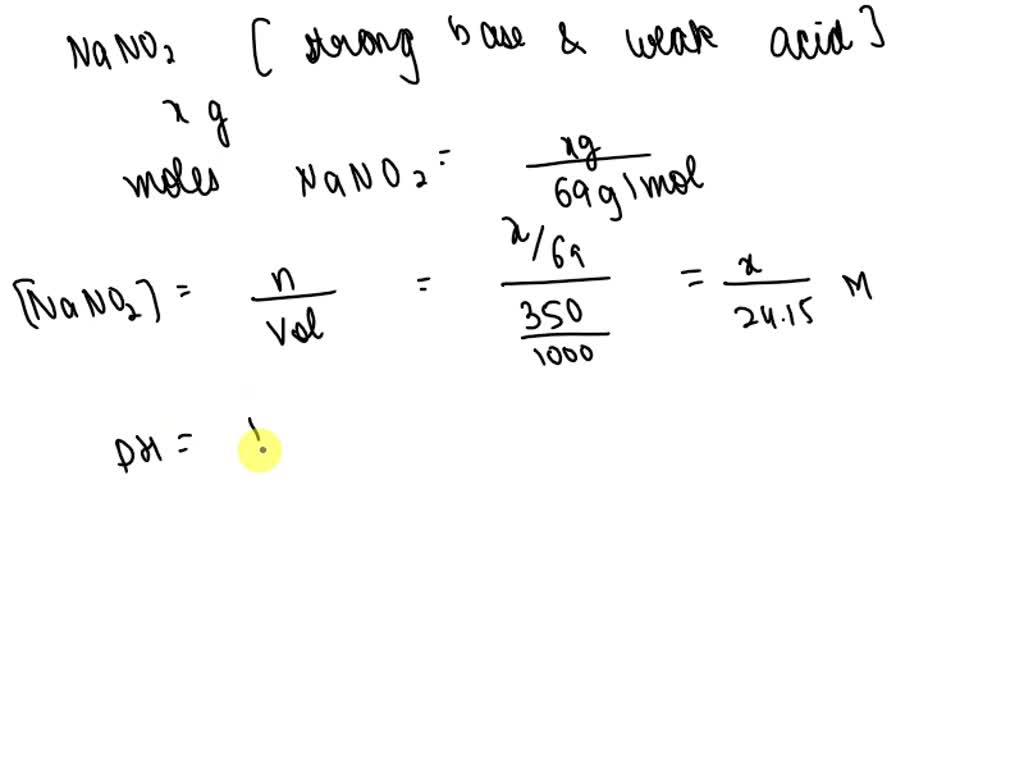 NaNO₂ [ strong base & weak acid ]
x g
moles NaNO₂ = xg / 69 g/mol
[NaNO₂] = n / Vol = x/69 / 350/1000 = x / 24.15 M
pH =